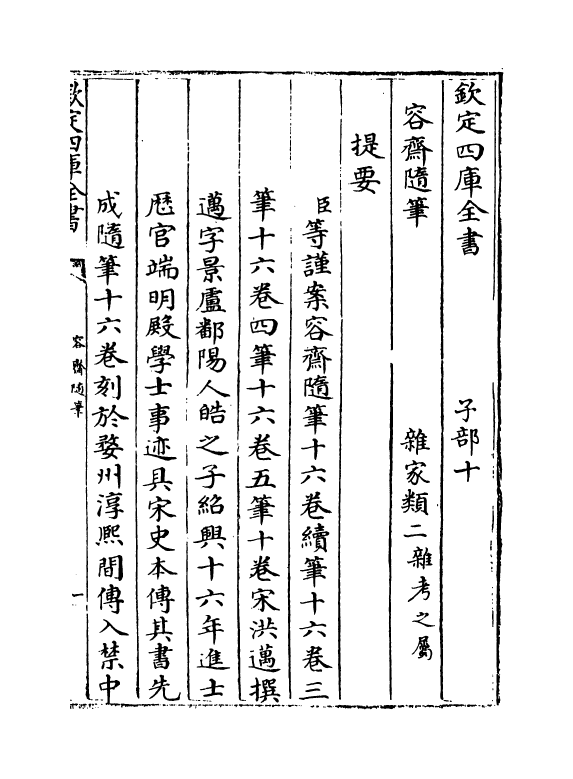 欽定四庫全書　子部十
容齋隨筆　雜家類二雜考之屬
提要
臣等謹案容齋隨筆十六卷續筆十六卷三
筆十六卷四筆十六卷五筆十卷宋洪邁撰
邁字景盧鄱陽人皓之子紹興十六年進士
歷官端明殿學士事迹具宋史本傳其書先
成隨筆十六卷刻於婺州淳熙間傳入禁中
欽定四庫全書
容齋隨筆
一